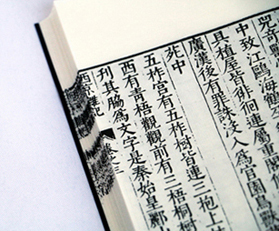 兕奇
中致江鷗海鶴
具植屋皆徘徊連屬
廣漢後有罪誅沒入為官園鳥
苑中
五柞宮有五柞樹皆連三抱上枝
西有青梧觀觀前有三梧桐樹
刊其脇為文字是秦始皇酈
西京雜記 卷三